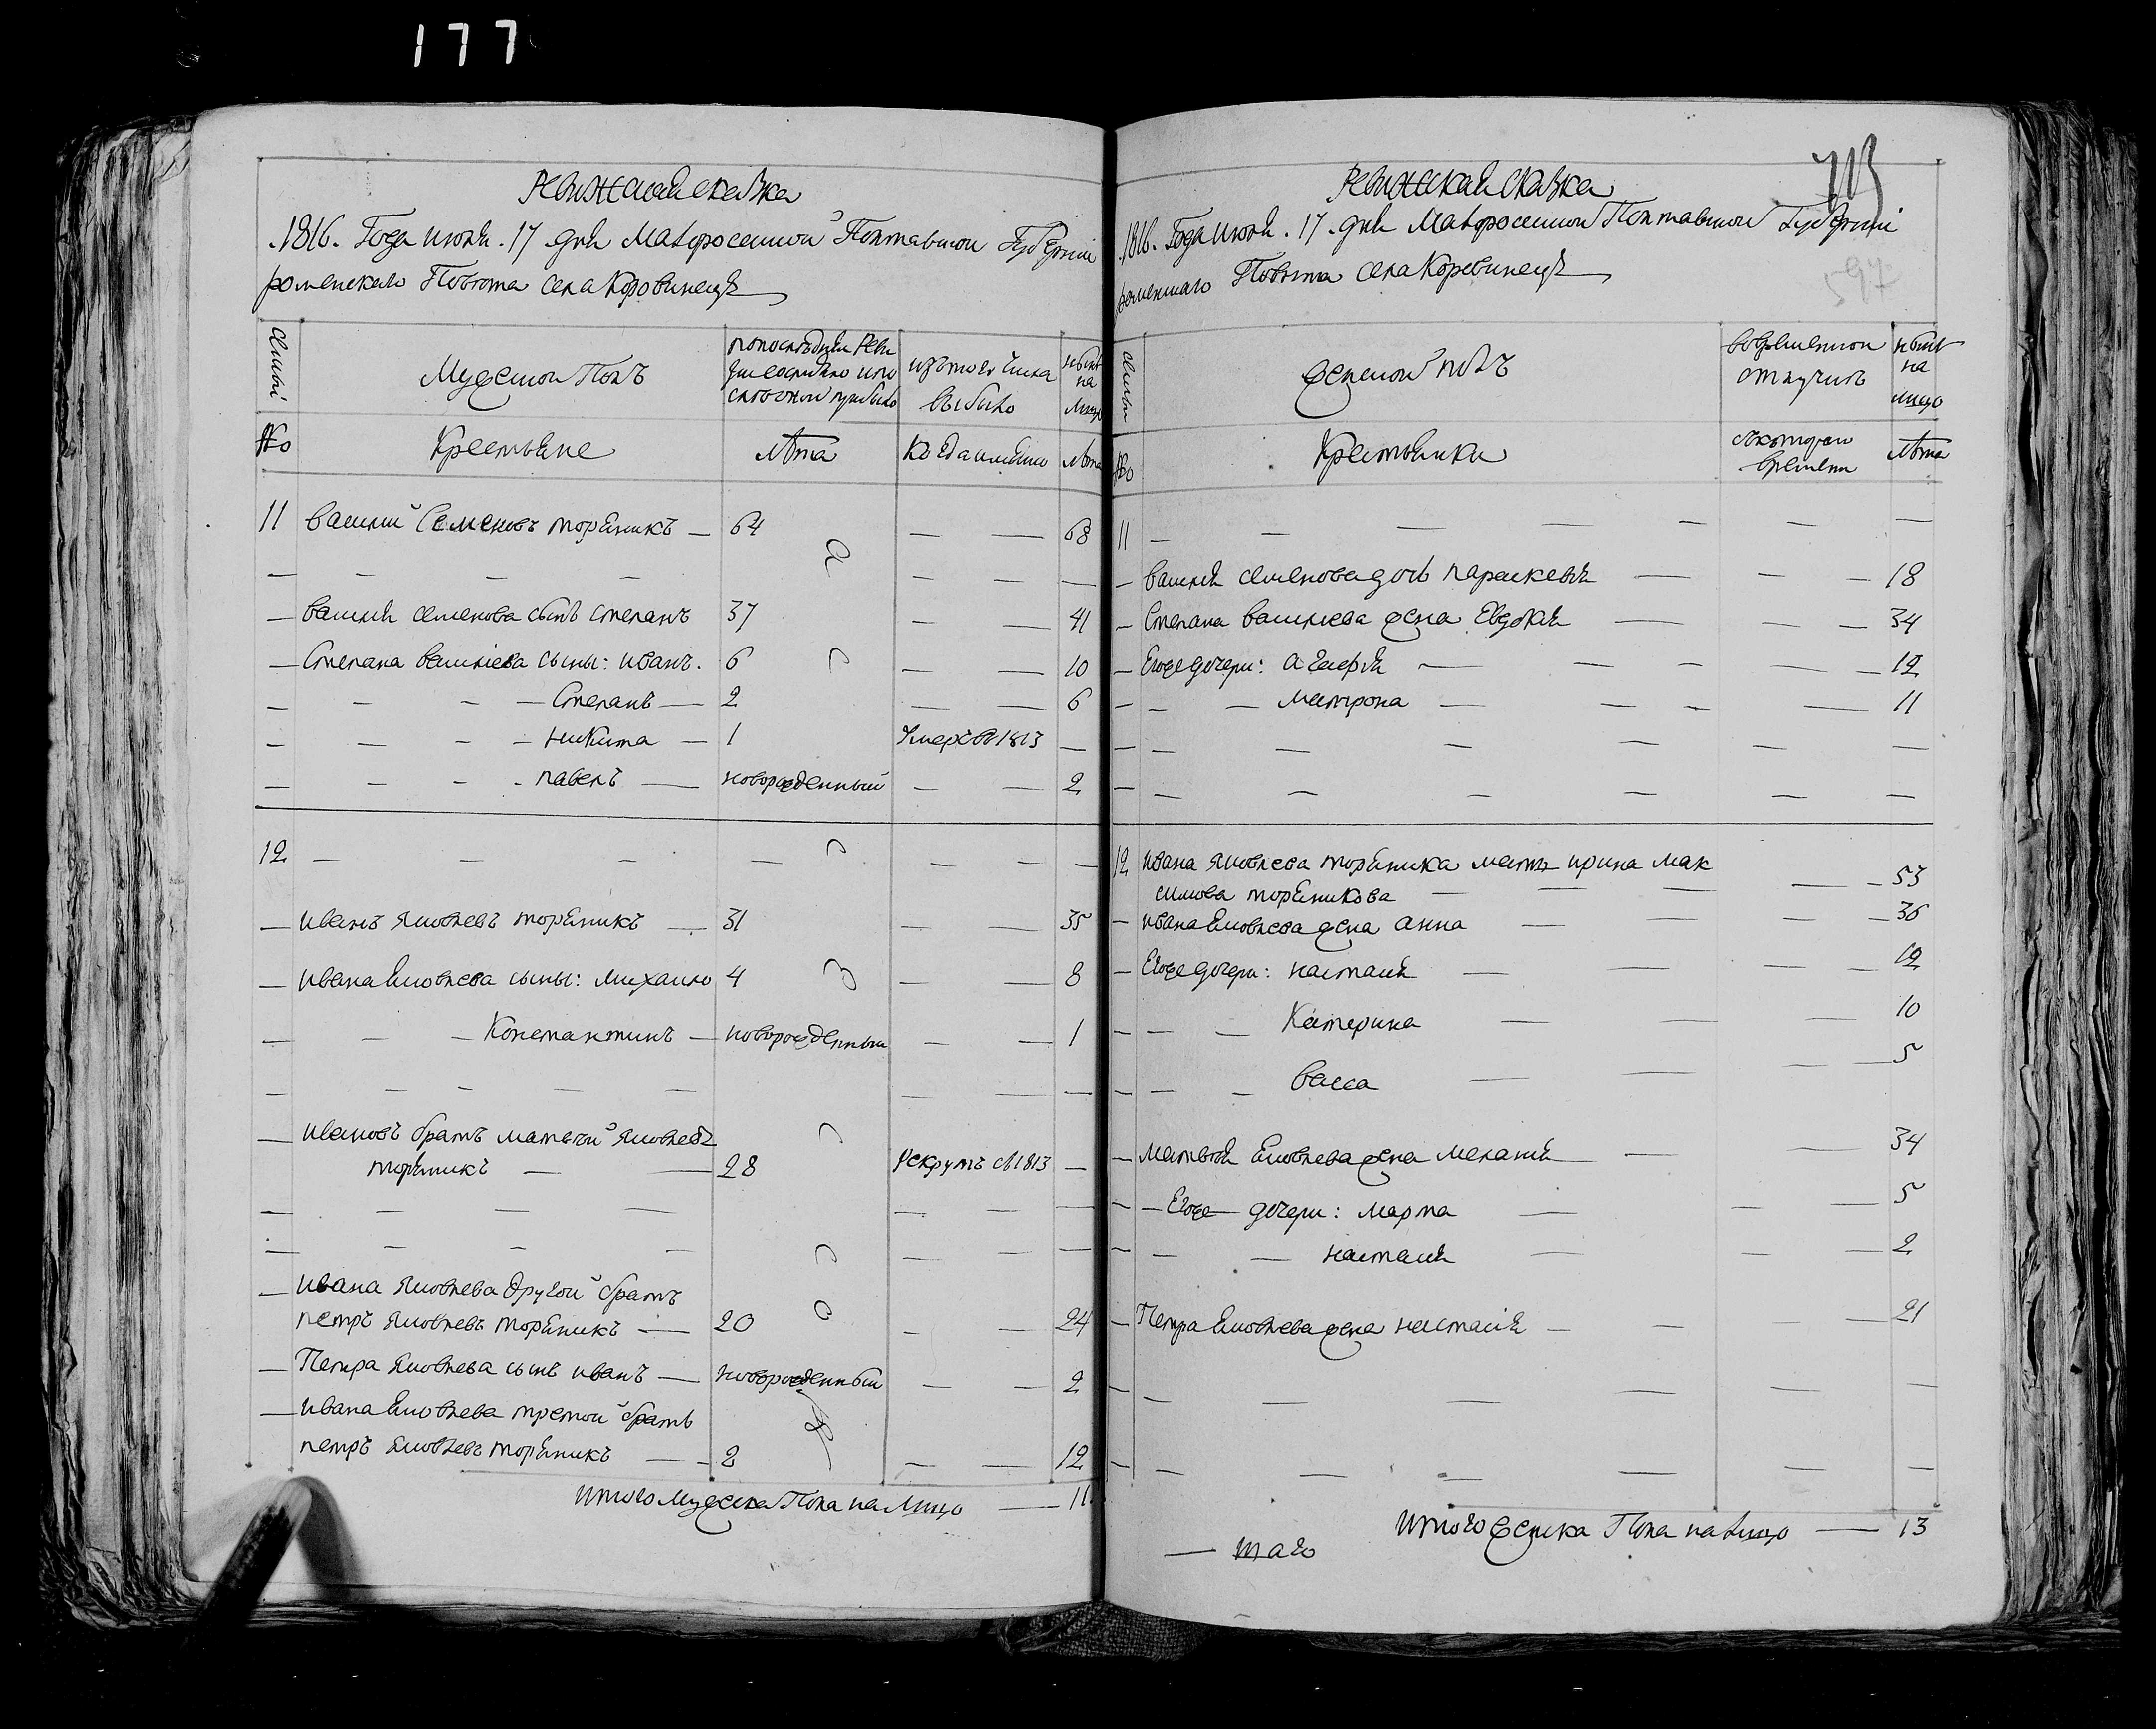 177
Ревижская сказка
.1816. Года июля .17 дня Малоросейской Полтавской Губернии
роменскаго Повета села Коровинец
Семьи
Мужеской Полъ
по последней Ревизии состояло и после оной прибыло
изъ того числа выбыло
ныне на лицо
№
Крестьяне
Лета
Когда имянно
Лета
11 василий Семеновъ торяникъ — 64 — — 68
— — — — — — —
— василия семенова сынъ степанъ 37 — — 41
— Степана василиева сыны: иванъ. 6 — — 10
— — — — Степанъ — 2 — — 6
— — — — никита — 1 Умеръ в 1813 —
— — — - павелъ — новорожденный — — 2
12 — — — — — — —
— иванъ яковлевъ торяникъ — 31 — — 35
— ивана яковлева сыны: михайло 4 — — 8
— — — Константинъ — новорожденный — — 1
— — — — — — — —
— ивановъ братъ матвей яковлевъ
торяникъ — — 28 рекрутъ в 1813 —
— — — — — — —
— — — — — — —
— ивана яковлева другой братъ
петръ яковлевъ торяникъ — 20 — — 24
— Петра яковлева сынъ иванъ — новорожденный — — 2
— ивана яковлева третой братъ
петръ яковлевъ торяникъ — - 2 — — 12
итого мужеска Пола на лицо — 11
713
597
Ревижская сказка
.1816. Года июля . 17 . дня Малоросейской Полтавской Губернии
роменскаго Повета села Коровинец
Семьи
женской полъ
во временной отлучке
ныне на лицо
№
Крестьянки
съ котораго времени
Лета
11 — — — — — — —
— василия семенова дочь параскевия — — — 18
— Степана василиева жена Евдокия — — — 34
— Егоже дочери: агафия — — — — — 12
— — — матрона — — — — 11
— — — — — — —
— — — — — — —
12 ивана яковлева торяника мать ирина мак
симова торяникова — — — — - 53
— ивана яковлева жена анна — — — — 36
— Егоже дочери: настасия — — — — 12
— — — Катерина — — — 10
— — - васса — — — — 5
— матвея яковлева жена мелания — — 34
— — Егоже — дочери: марта — — — 5
— — — настасия — — — 2
— Петра яковлева жена настасия — — — — 21
— — — — — — —
— — — — — — —
итого женска Пола на лицо — 13
— того